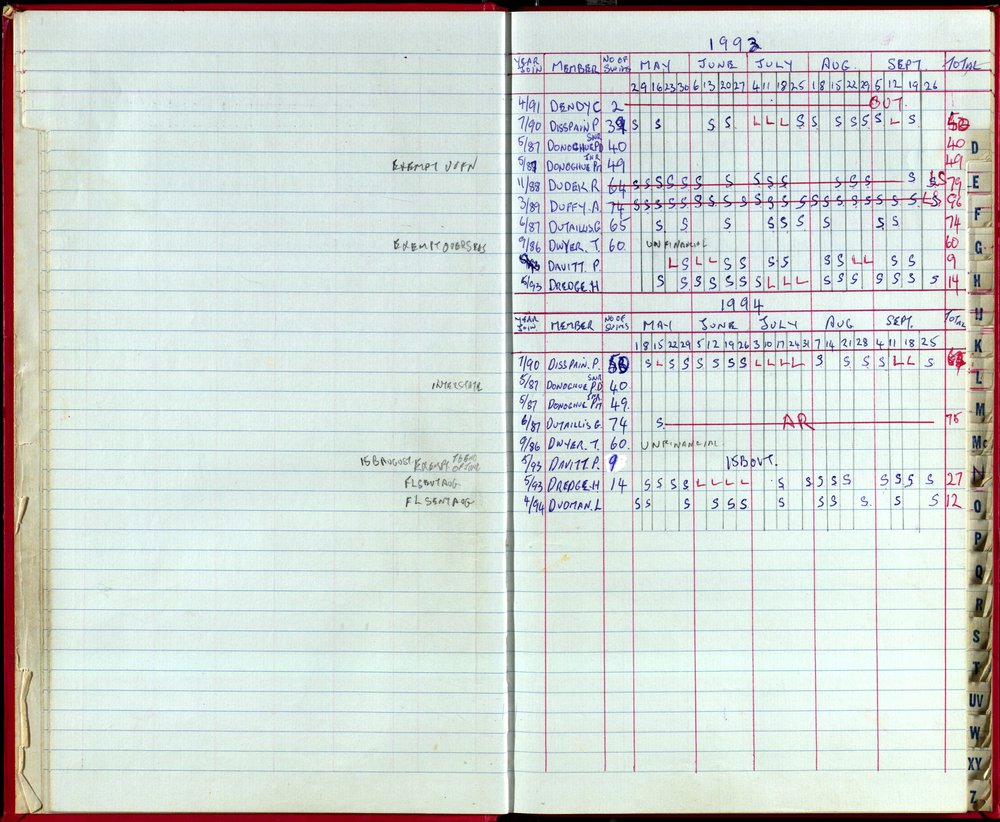 1993
YEAR JOIN MEMBER NO OF SWIMS MAY JUNE JULY AUG. SEPT TOTAL
2 9 16 23 30 6 13 20 27 4 11 18 25 1 8 15 22 29 5 12 19 26
4/91 DENDY C 2 OUT.
7/90 DISSPAIN P. S S S S L L L S S S S S S L S
5/87 DONOGHUE P D SNR 40 40
EXEMPT 5/87 DONOGHUE P M JNR 49 49
11/88 DUDEK R 64 S S S S S S S S S S S S S S 79
3/89 DUFFY. A. 74 S S S S S S S S S S S S S S S S S S S S S 96
6/87 DUTAILLIS G 65 S S S S S S S S S 74
EXEMPT OVERSEAS 9/86 DWYER. T. 60. UNFINANCIAL 60
DAVITT. P. L S L L S S S S S S L L S S 9
5/93 DREDGE. H S S S S S S S S L L L S S S S S S S S 14
1994
YEAR JOIN MEMBER NO OF SWIMS MAY JUNE JULY AUG SEPT. TOTAL
1 8 15 22 29 5 12 19 26 3 10 17 24 31 7 14 21 28 4 11 18 25
7/90 DISSPAIN. P. S L S S S S S S L L L L S S S S L L S
INTERSTATE 5/87 DONOGHUE P D SNR 40
5/87 DONOGHUE P M JNR 49.
6/87 DUTAILLIS G. 74 S. AR 75
9/86 DWYER. T. 60. UNFINANCIAL
EXEMPT 5/93 DAVITT. P. 9
5/93 DREDGE. H 14 S S S S L L L L S S S S S S S S S 27
4/94 DUDMAN. L S S S S S S S S S S S S 12
D
E
F
G
H
IJ
K
L
M
Mc
N
O
P
Q
R
S
T
UV
W
XY
Z